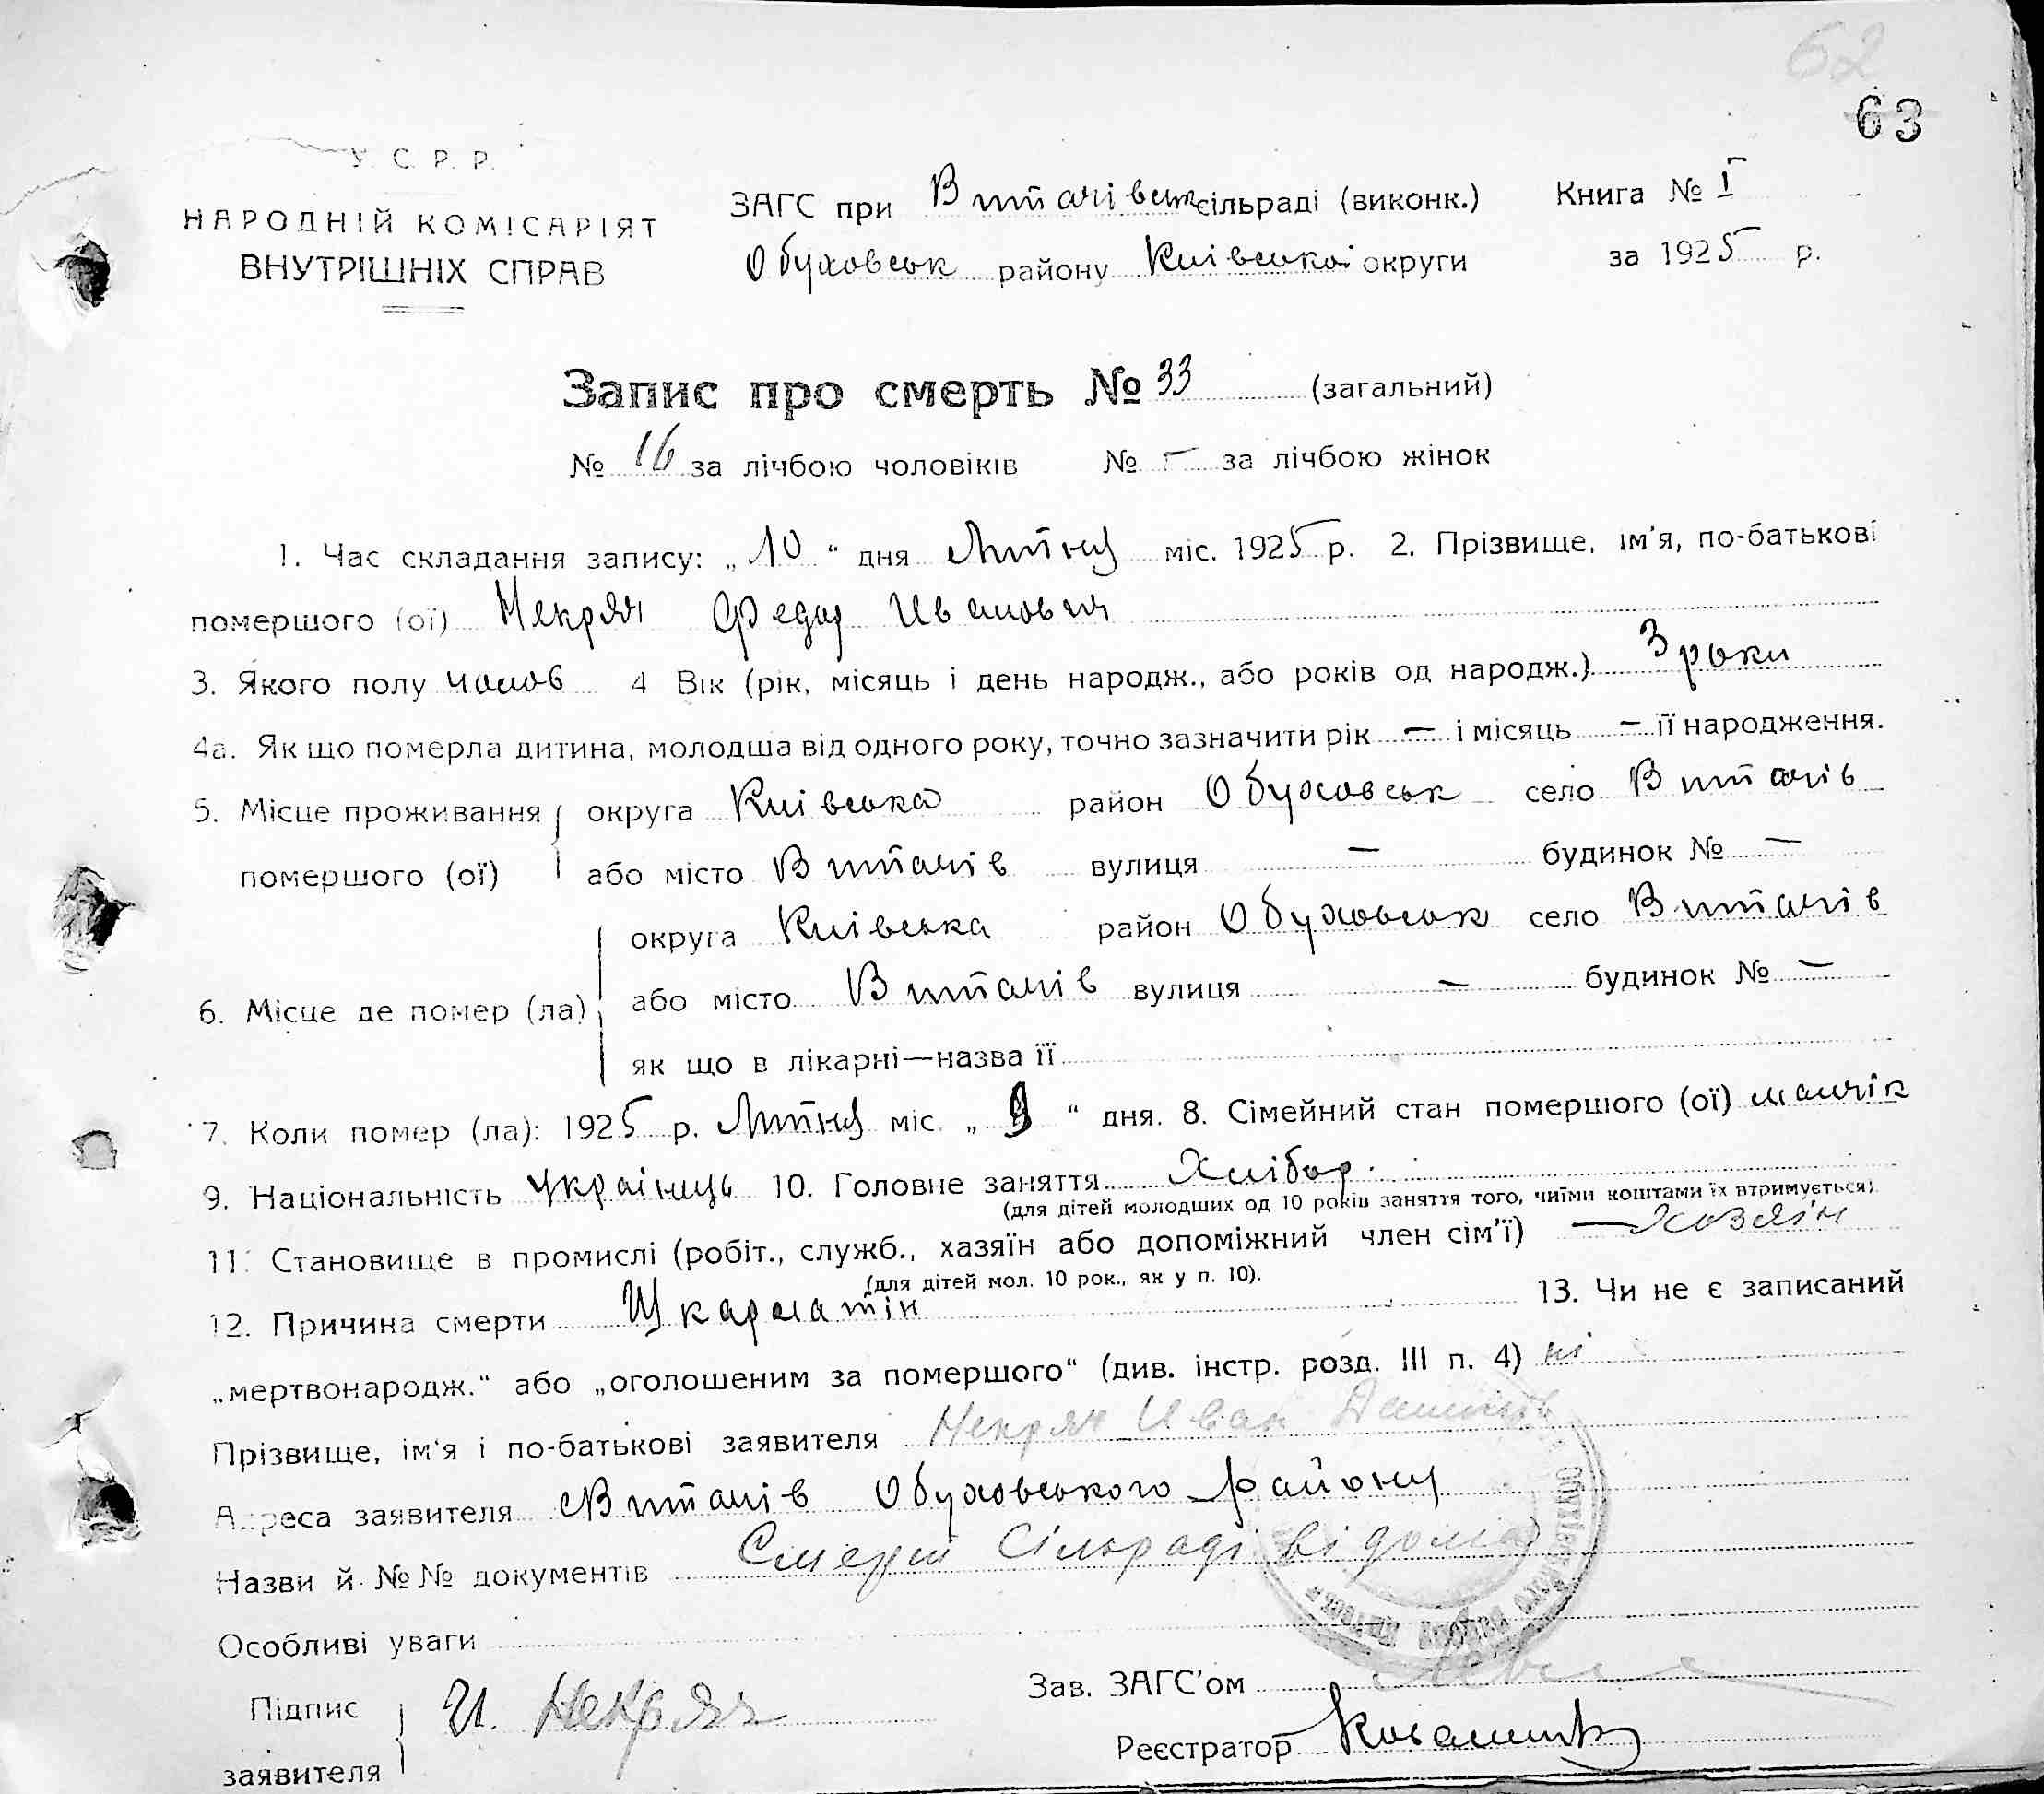 62
63
У. С. Р. Р.
НАРОДНІЙ КОМІСАРІЯТ
ВНУТРІШНІХ СПРАВ
ЗАГС при Витачівськ сільраді (виконк.)
Обуховськ району Київської округи
Книга № I
за 1925 р.
Запис про смерть № 33 (загальний)
№ 16 за лічбою чоловіків № — за лічбою жінок
1. Час складання запису: „10“ дня Лютня міс. 1925 р. 2. Прізвище, ім'я, по-батькові
помершого (ої) Некряч Федор Иванович
3. Якого полу чолов 4 Вік (рік, місяць і день народж., або років од народж.) 3 роки
4а. Як що померла дитина, молодша від одного року, точно зазначити рік — і місяць — її народження.
5. Місце проживання помершого (ої) округа Київська район Обуховськ село Витачів
або місто Витачів вулиця — будинок № —
6. Місце де помер (ла) округа Київська район Обуховськ село Витачів
або місто Витачів вулиця — будинок № —
як що в лікарні—назва її
7. Коли помер (ла): 1925 р. Лютня міс. „9“ дня. 8. Сімейний стан помершого (ої)
9. Національність українець 10. Головне заняття Хлібор.
(для дітей молодших од 10 років заняття того, чиїми коштами їх втримується)
11. Становище в промислі (робіт., служб., хазяїн або допоміжний член сім'ї) — хозяїн
(для дітей мол. 10 рок., як у п. 10).
12. Причина смерти Шкарлатін 13. Чи не є записаний
„мертвонародж.“ або „оголошеним за помершого“ (див. інстр. розд. III п. 4) ні
Прізвище, ім'я і по-батькові заявителя Некряч Иван
Адреса заявителя Витачів Обуховського району
Назви й №№ документів Смерть Сільраді відома
Особливі уваги
Підпис заявителя И. Некряч
Зав. ЗАГС'ом
Реєстратор